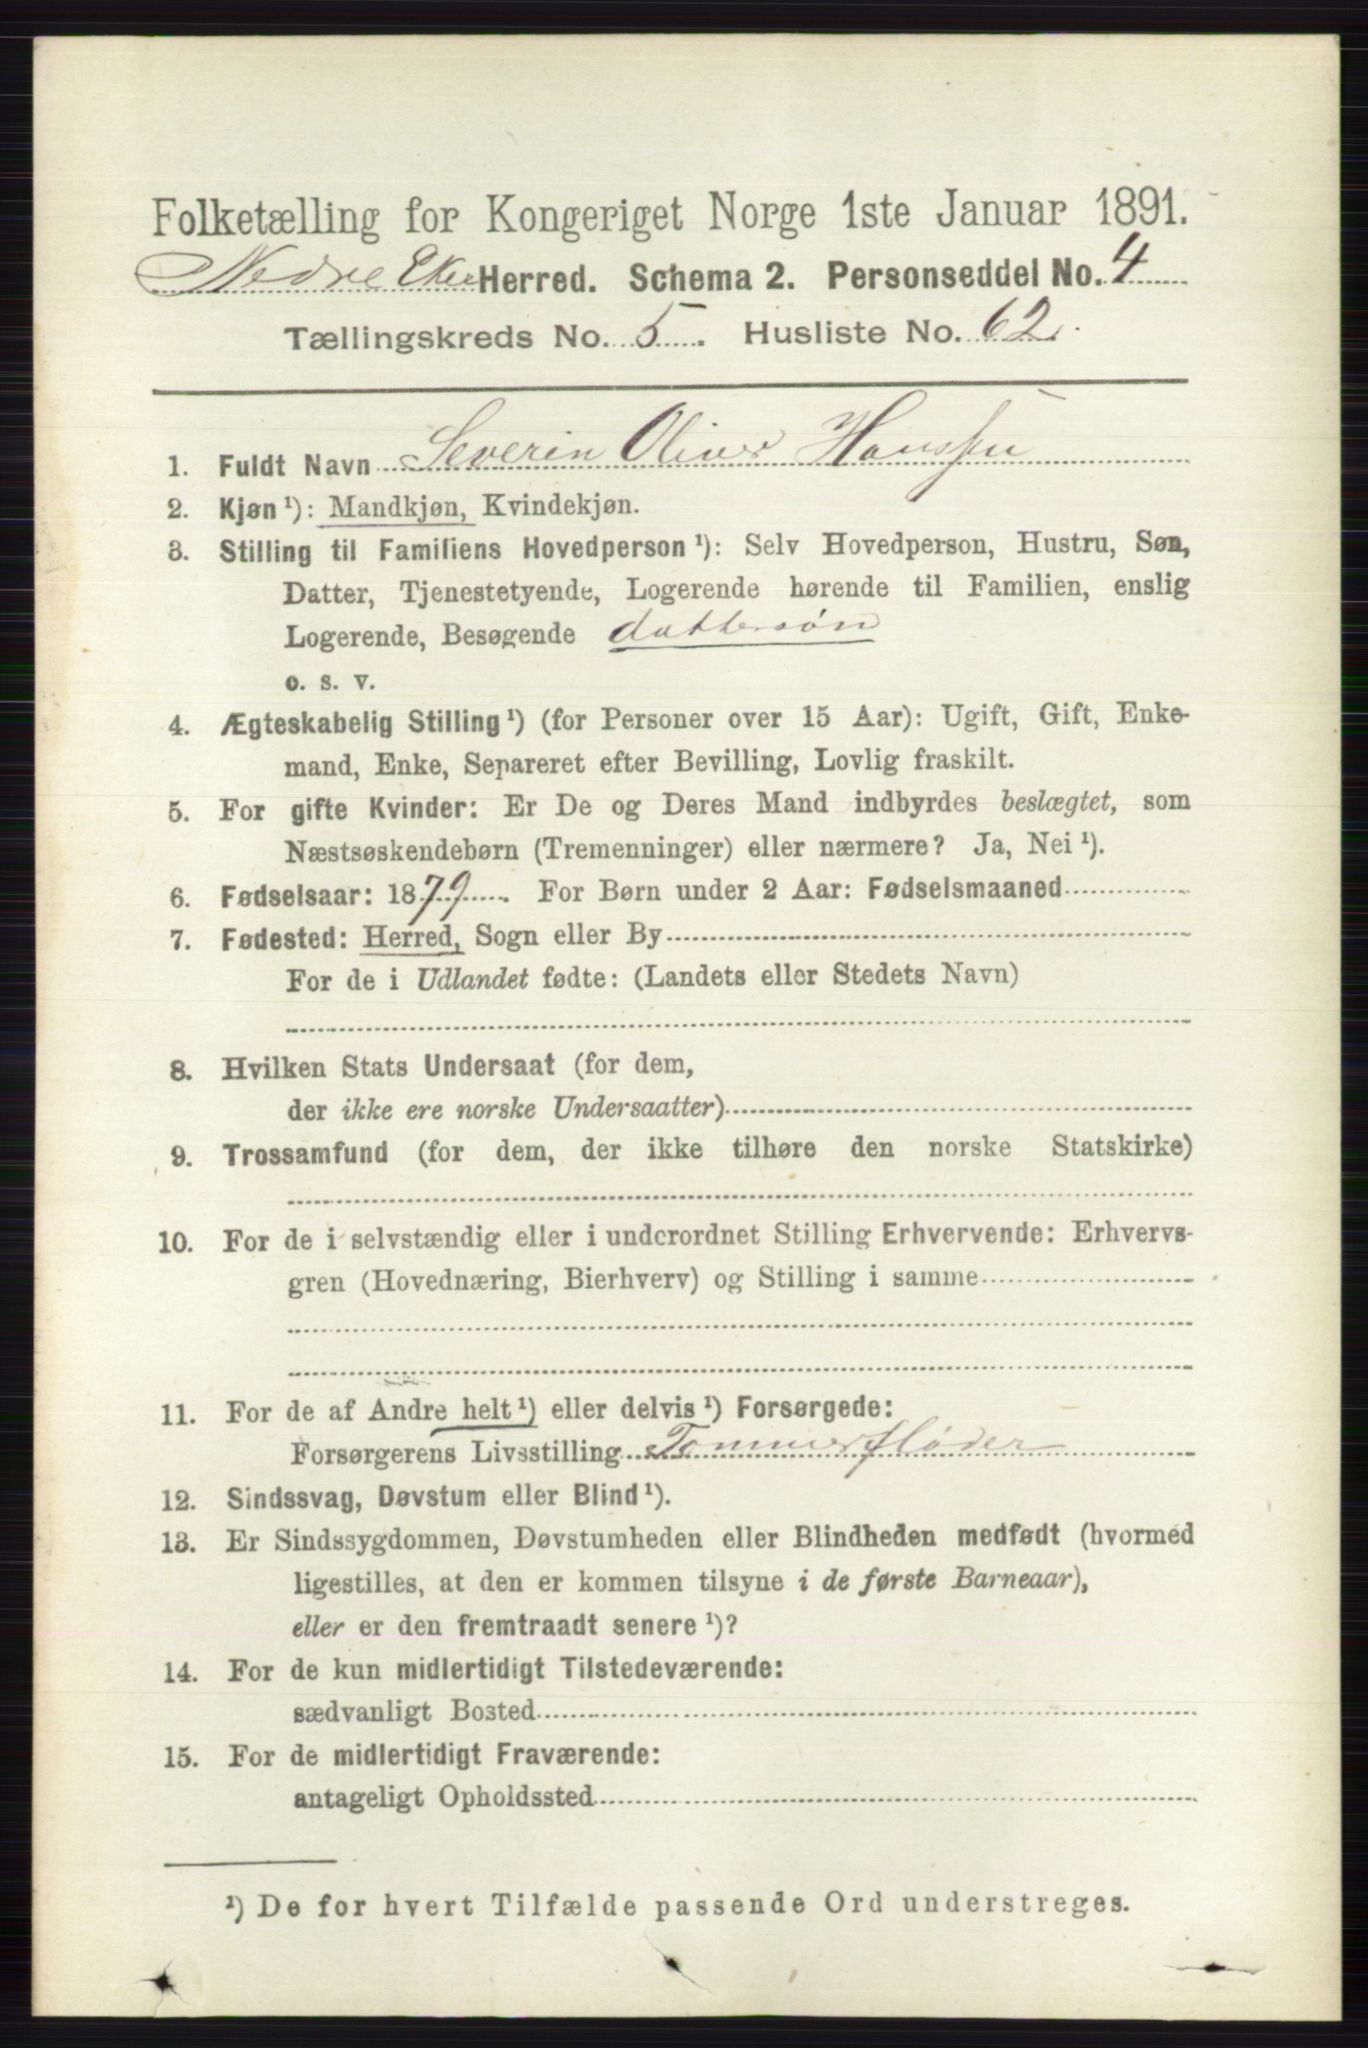 Folketælling for Kongeriget Norge 1ste Januar 1891.
Nedre Eker Herred. Schema 2. Personseddel No. 4
Tællingskreds No. 5. Husliste No. 62.
1. Fuldt Navn Severin Oliver Hanssen
2. Kjøn¹): Mandkjøn, Kvindekjøn.
3. Stilling til Familiens Hovedperson¹): Selv Hovedperson, Hustru, Søn,
Datter, Tjenestetyende, Logerende hørende til Familien, enslig
Logerende, Besøgende dattersøn
o. s. v.
4. Ægteskabelig Stilling¹) (for Personer over 15 Aar): Ugift, Gift, Enke-
mand, Enke, Separeret efter Bevilling, Lovlig fraskilt.
5. For gifte Kvinder: Er De og Deres Mand indbyrdes beslægtet, som
Næstsøskendebørn (Tremenninger) eller nærmere? Ja, Nei¹).
6. Fødselsaar: 1879. For Børn under 2 Aar: Fødselsmaaned
7. Fødested: Herred, Sogn eller By
For de i Udlandet fødte: (Landets eller Stedets Navn)
8. Hvilken Stats Undersaat (for dem,
der ikke ere norske Undersaatter)
9. Trossamfund (for dem, der ikke tilhøre den norske Statskirke)
10. For de i selvstændig eller i underordnet Stilling Erhvervende: Erhvervs-
gren (Hovednæring, Bierhverv) og Stilling i samme
11. For de af Andre helt¹) eller delvis¹) Forsørgede:
Forsørgerens Livsstilling Tømmerfløder
12. Sindssvag, Døvstum eller Blind¹).
13. Er Sindssygdommen, Døvstumheden eller Blindheden medfødt (hvormed
ligestilles, at den er kommen tilsyne i de første Barneaar),
eller er den fremtraadt senere¹)?
14. For de kun midlertidigt Tilstedeværende:
sædvanligt Bosted
15. For de midlertidigt Fraværende:
antageligt Opholdssted
¹) De for hvert Tilfælde passende Ord understreges.